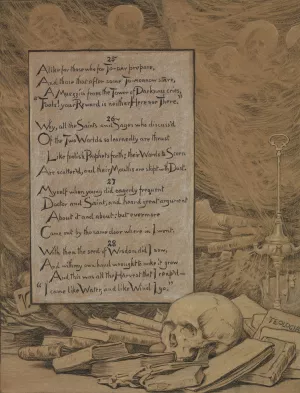 25
Alike for those who for To-day prepare,
And those that after some To-morrow stare,
A Muezzín from the Tower of Darkness cries,
"Fools! your Reward is neither Here nor There."
26
Why, all the Saints and Sages who discuss'd
Of the Two Worlds so learnedly are thrust
Like foolish Prophets forth; their Words to Scorn
Are scatter'd, and their Mouths are stopt with Dust.
27
Myself when young did eagerly frequent
Doctor and Saint, and heard great argument
About it and about: but evermore
Came out by the same door where in I went.
28
With them the seed of Wisdom did I sow,
And with my own hand wrought to make it grow
And this was all the Harvest that I reap'd —
"I came like Water, and like Wind I go."